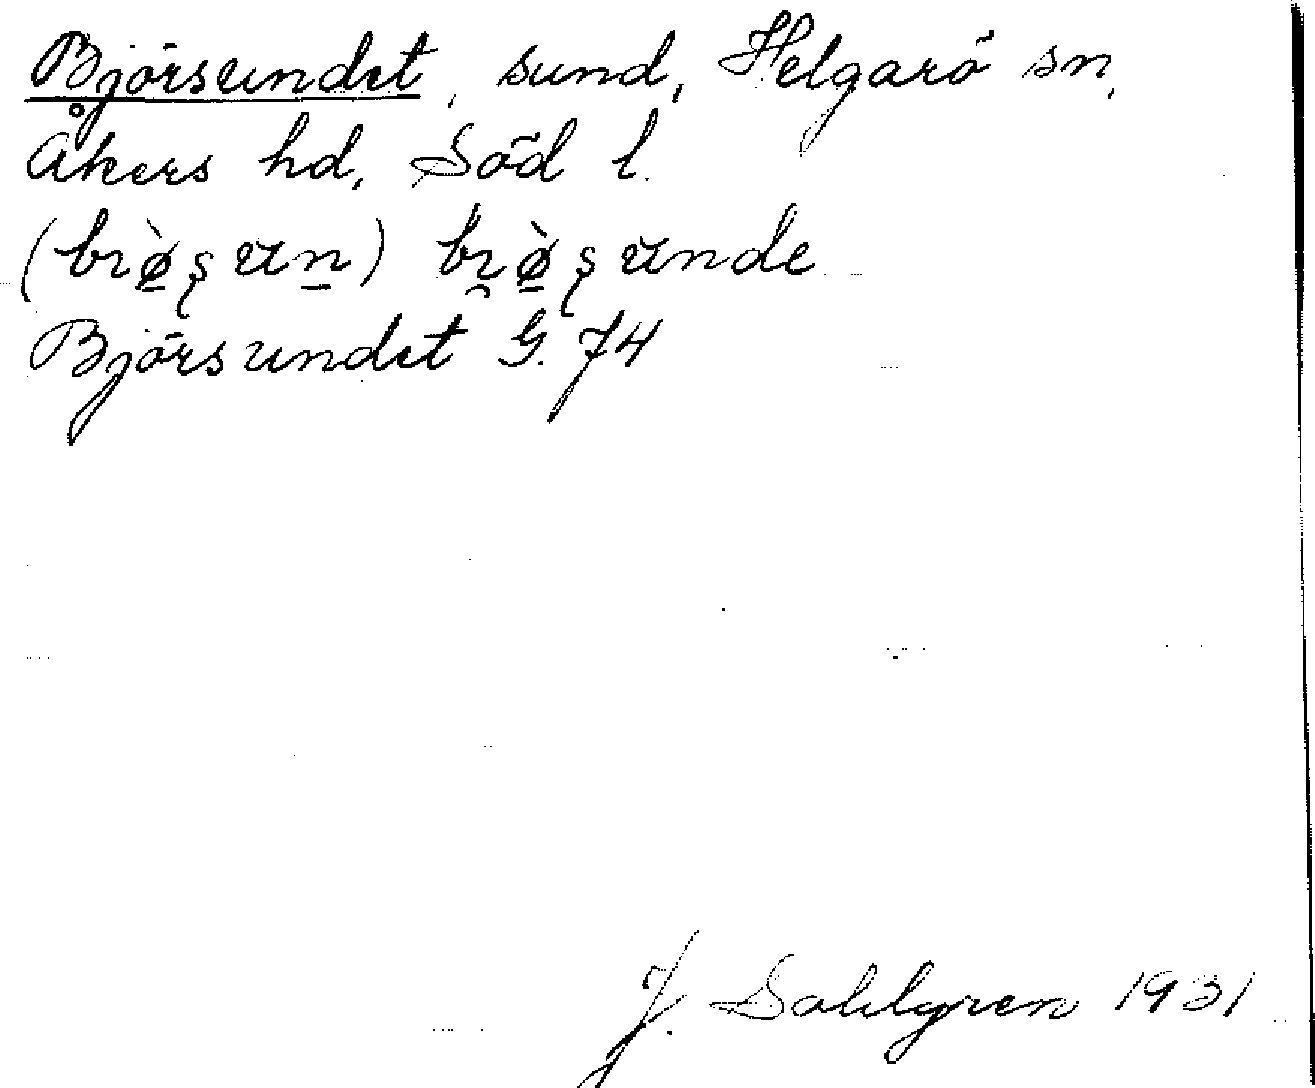 Björsundet, sund, Helgarö sn,
Åkers hd, Söd l.
(brø̀ʂun) brø̀ʂunde
Björsundet G. 74
J. Sahlgren 1931